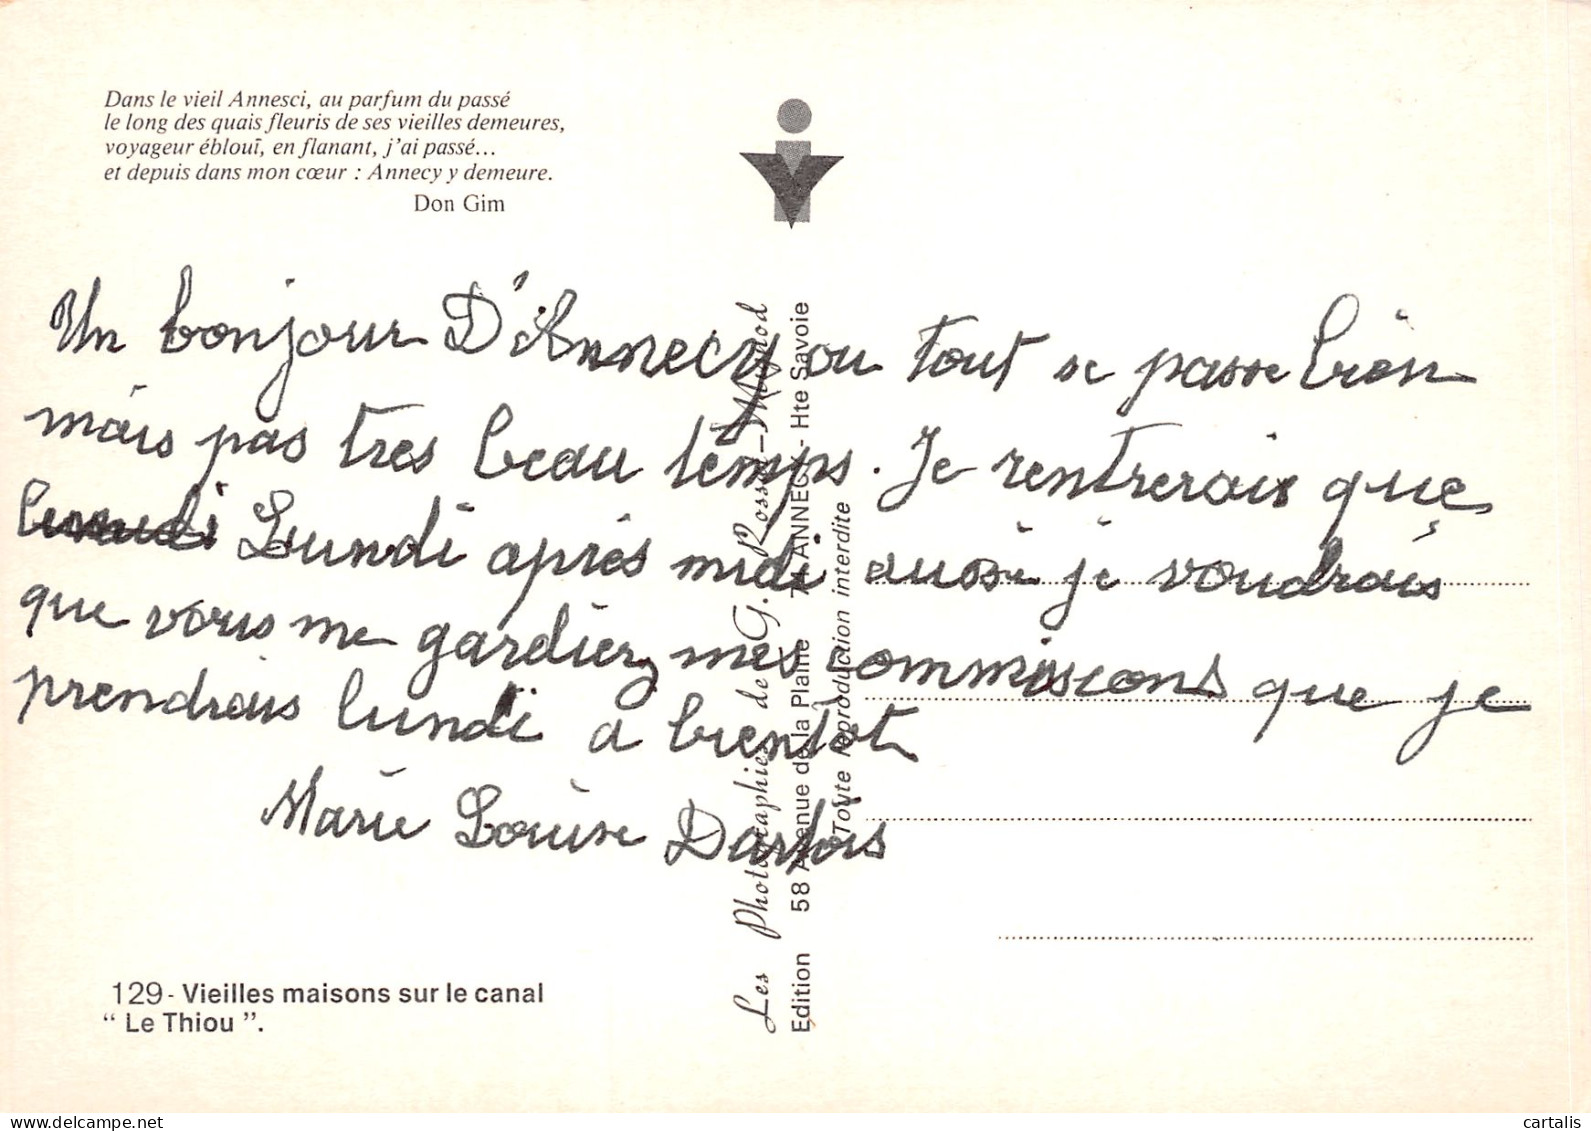 Dans le vieil Annesci, au parfum du passé
le long des quais fleuris de ses vieilles demeures,
voyageur éblouï, en flanant, j'ai passé...
et depuis dans mon cœur : Annecy y demeure.
Don Gim
Un bonjour D'Annecy ou tout se passe bien
mais pas tres beau temps. Je rentrerais que
lundi Lundi après midi aussi je voudrais
que vous me gardiez mes commiscons que je
prendrais lundi a bientot
Marie Louise
129 - Vieilles maisons sur le canal
“ Le Thiou ”.
Les Photographies de G. Rossat-Mignod
Edition 58 Avenue de la Plaine 74 ANNECY - Hte Savoie
Toute reproduction interdite
cartalis
delcampe.net